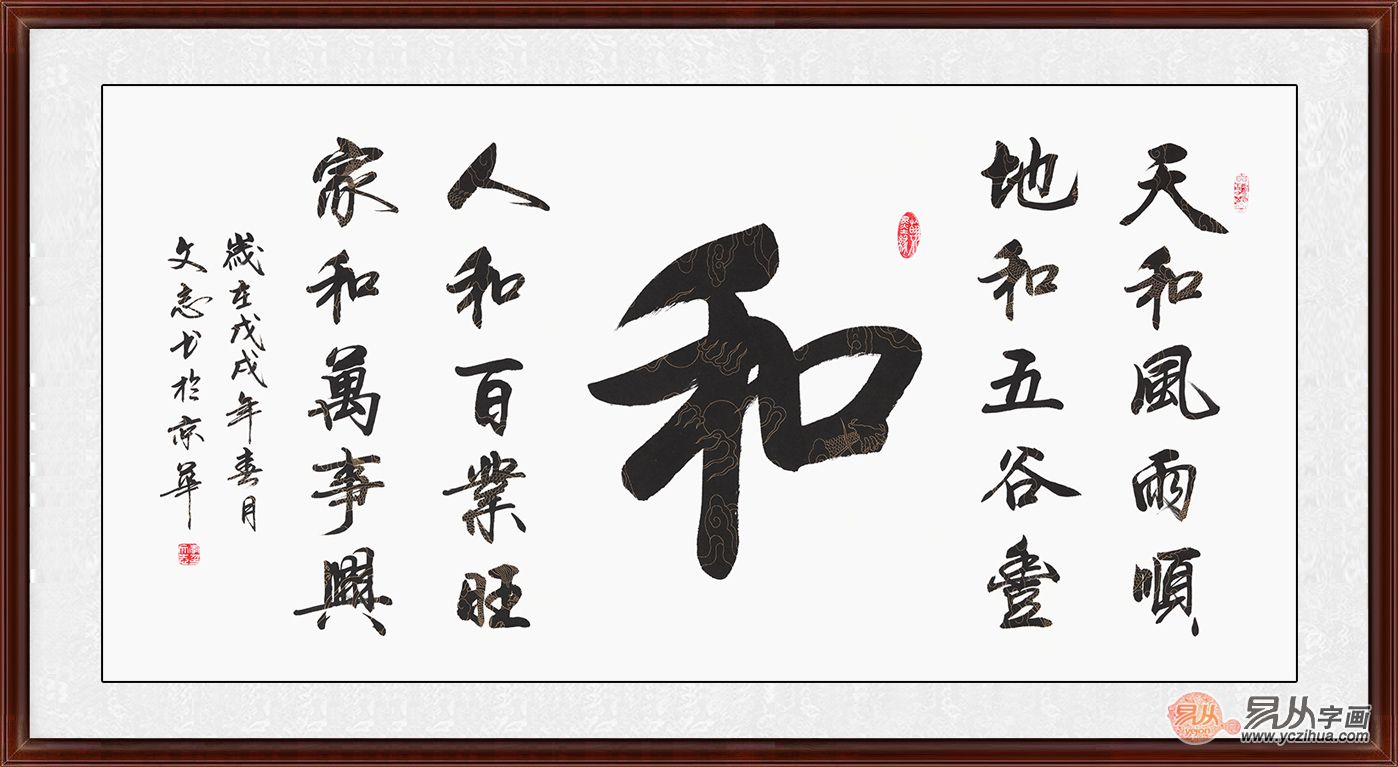 天和風雨順
地和五谷豊
和
人和百業旺
家和萬事興
歲在戊戌年春月
文志书於京華
易从
yicon
易从字画
www.yczihua.com